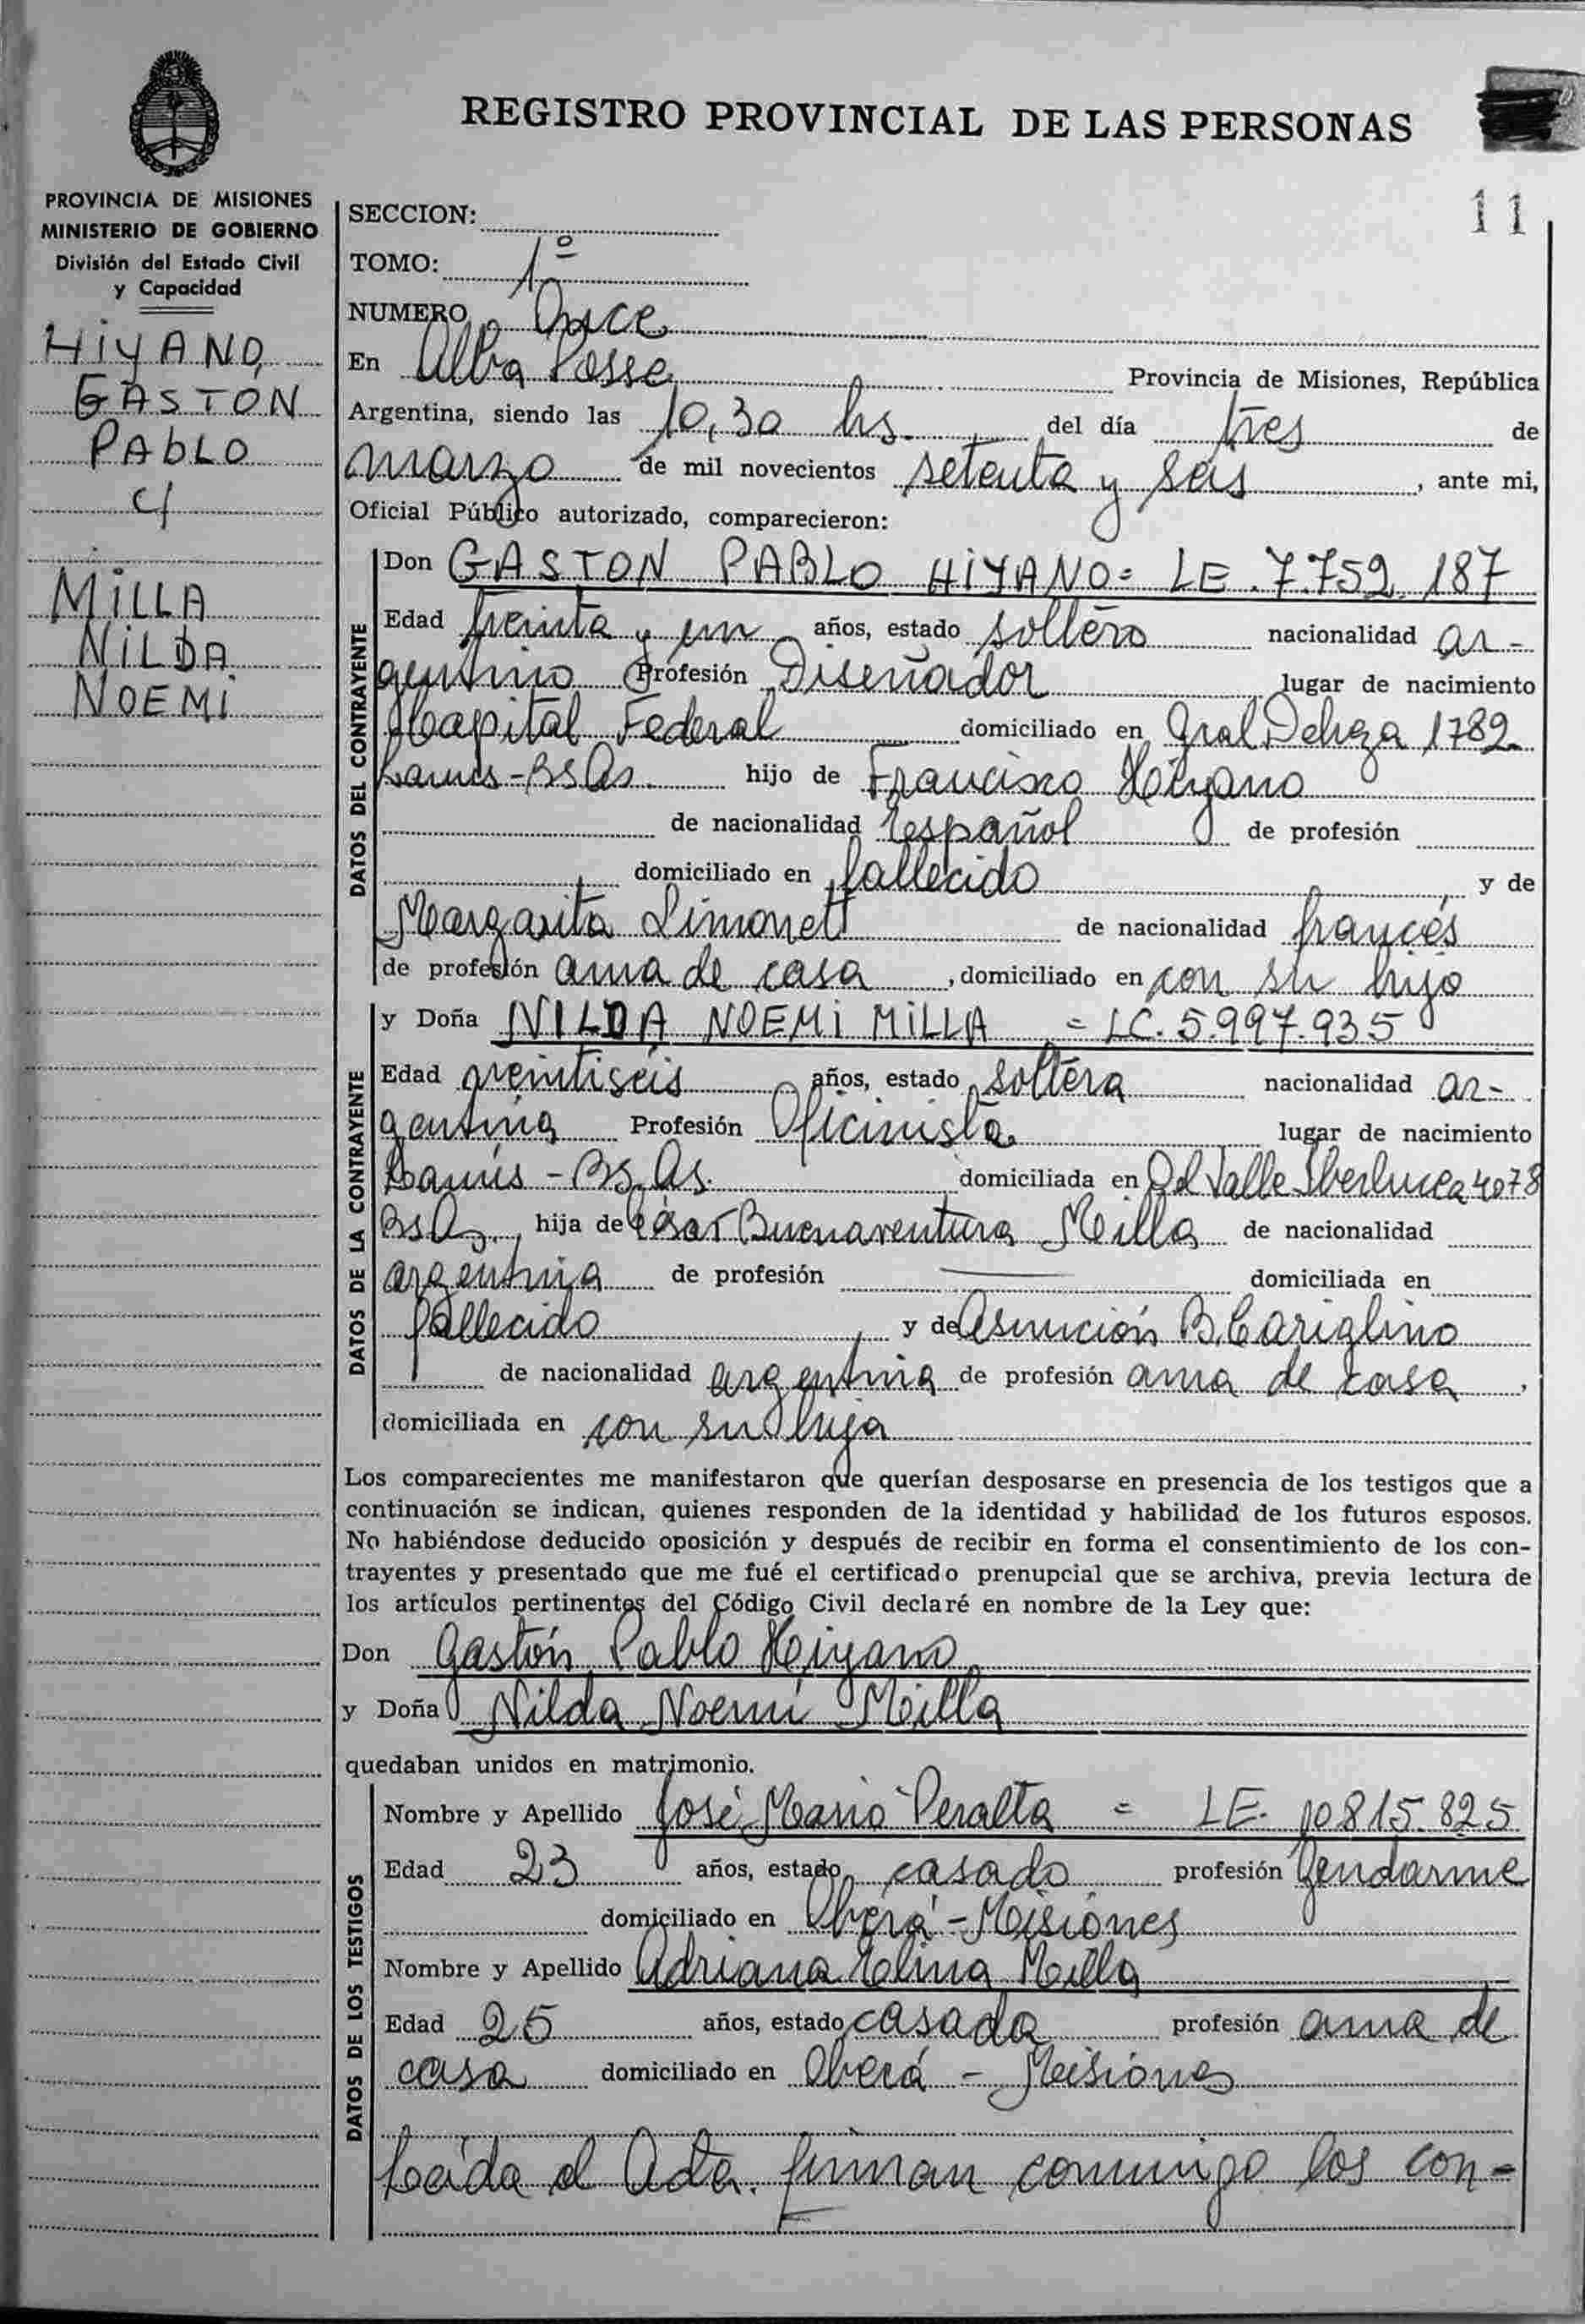 REGISTRO PROVINCIAL DE LAS PERSONAS
11
PROVINCIA DE MISIONES
MINISTERIO DE GOBIERNO
División del Estado Civil
y Capacidad
HIYANO,
GASTON
PABLO
c/
MILLA
NILDA
NOEMI
SECCION:
TOMO: 1º
NUMERO Once
En Alba Posse Provincia de Misiones, República
Argentina, siendo las 10,30 hs. del día tres de
marzo de mil novecientos setenta y seis, ante mi,
Oficial Público autorizado, comparecieron:
DATOS DEL CONTRAYENTE
Don GASTON PABLO HIYANO = LE. 7.759.187
Edad treinta y un años, estado soltero nacionalidad ar-
gentino Profesión Diseñador lugar de nacimiento
Capital Federal domiciliado en Gral Deheza 1782
Lanús - Bs As. hijo de Francisco Hiyano
de nacionalidad español de profesión
domiciliado en fallecido y de
Margarita Limonett de nacionalidad francés
de profesión ama de casa, domiciliado en con su hijo
DATOS DE LA CONTRAYENTE
y Doña NILDA NOEMI MILLA = LC. 5.997.935
Edad veintiseis años, estado soltera nacionalidad ar-
gentina Profesión Oficinista lugar de nacimiento
Lanús - Bs. As. domiciliada en Del Valle Iberlucea 4078
Bs As., hija de César Buenaventura Milla de nacionalidad
argentina de profesión — domiciliada en
fallecido y de Asunción B. Cariglino
de nacionalidad argentina de profesión ama de casa,
domiciliada en con su hija
Los comparecientes me manifestaron que querían desposarse en presencia de los testigos que a
continuación se indican, quienes responden de la identidad y habilidad de los futuros esposos.
No habiéndose deducido oposición y después de recibir en forma el consentimiento de los con-
trayentes y presentado que me fué el certificado prenupcial que se archiva, previa lectura de
los artículos pertinentes del Código Civil declaré en nombre de la Ley que:
Don Gastón Pablo Hiyano
y Doña Nilda Noemí Milla
quedaban unidos en matrimonio.
DATOS DE LOS TESTIGOS
Nombre y Apellido José Mario Peralta = LE. 10.815.825
Edad 23 años, estado casado profesión Gendarme
domiciliado en Oberá - Misiones
Nombre y Apellido Adriana Elina Milla
Edad 25 años, estado casada profesión ama de
casa domiciliado en Oberá - Misiones
Leída el Acta, firman conmigo los con-